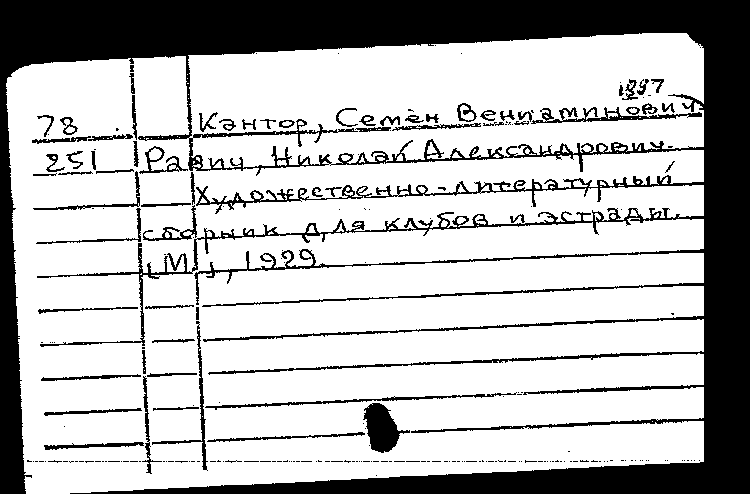 1897
78 Кантор, Семён Вениаминович.
251 Равич, Николай Александрович.
Художественно-литературный
сборник для клубов и эстрады.
[М.], 1929.